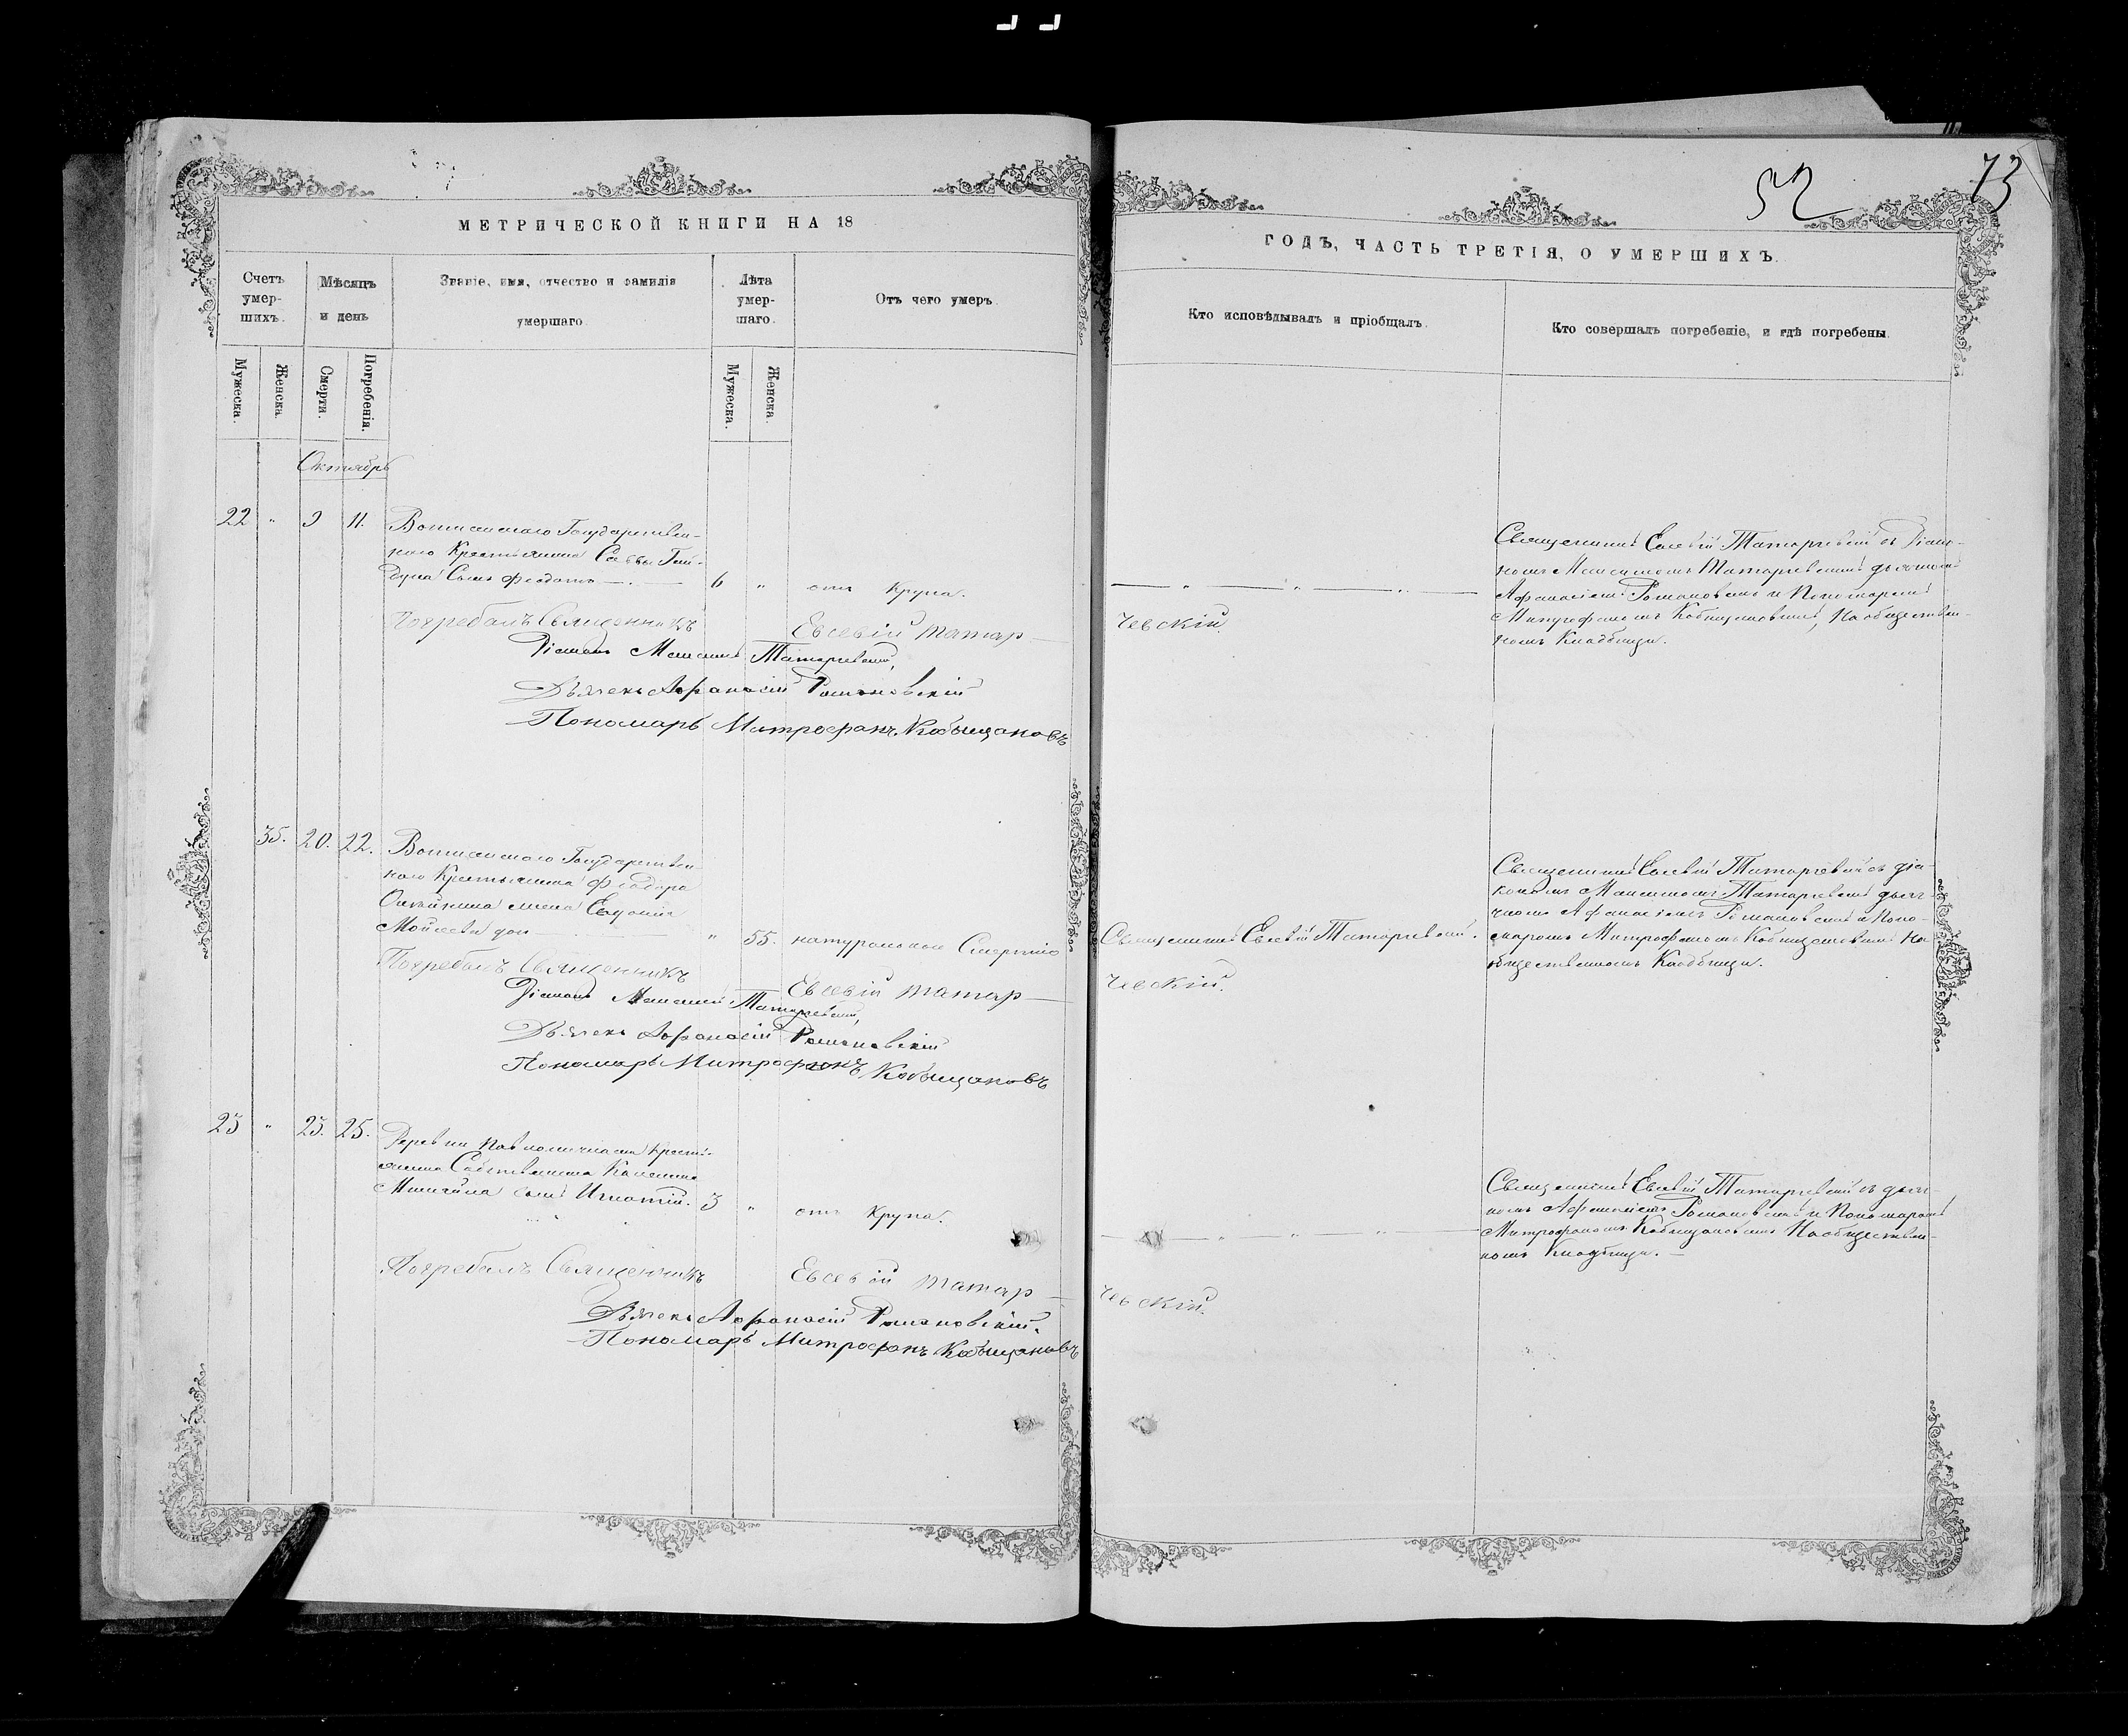 52
73
МЕТРИЧЕСКОЙ КНИГИ НА 18
ГОДЪ, ЧАСТЬ ТРЕТІЯ, О УМЕРШИХЪ.
Счетъ умер-шихъ.
Мѣсяцъ и день
Званіе, имя, отчество и фамилія умершаго.
Лѣта умер-шаго.
Отъ чего умеръ.
Кто исповѣдывалъ и пріобщалъ.
Кто совершалъ погребеніе, и гдѣ погребены.
Мужеска.
Женска.
Смерти.
Погребенія.
Мужеска.
Женска.
Октябрь
22 " 9 11.
Государствен-
наго Крестьянина Саввы
Сынъ Феодотъ
6 " отъ Крупа.
Священникъ Евсевій Татарчевскій съ Діако-
номъ Татарчевскимъ дьячкомъ
Афанасіемъ Романовскимъ и Пономаремъ
Митрофаномъ Кобыщановымъ, На обществен-
номъ Кладбищи.
Погребалъ Священникъ Евсевій Татар-
чевскій.
Діаконъ Татарчевскій,
Дьячекъ Афанасій Романовскій
Пономарь Митрофанъ Кобыщановъ
35. 20. 22.
Государствен-
наго Крестьянина Феодора
жена Евдокія
" 55. натуральною Смертію
Священникъ Евсевій Татарчевскій.
Священникъ Евсевій Татарчевскій съ діа-
кономъ Татарчевскимъ дьяч-
комъ Афанасіемъ Романовскимъ и Поно-
маремъ Митрофаномъ Кобыщановымъ На
общественномъ Кладбищи.
Погребалъ Священникъ Евсевій Татар-
чевскій.
Діаконъ Татарчевскій,
Дьячекъ Афанасій Романовскій
Пономарь Митрофанъ Кобыщановъ
23 " 23. 25.
Деревни Крестья-
нина Собственника
сынъ Игнатій.
3 " отъ Крупа.
Священникъ Евсевій Татарчевскій съ дьяч-
комъ Афанасіемъ Романовскимъ и Пономаремъ
Митрофаномъ Кобыщановымъ На обществен-
номъ Кладбищи.
Погребалъ Священникъ Евсевій Татар-
чевскій.
Дьячекъ Афанасій Романовскій.
Пономарь Митрофанъ Кобыщановъ